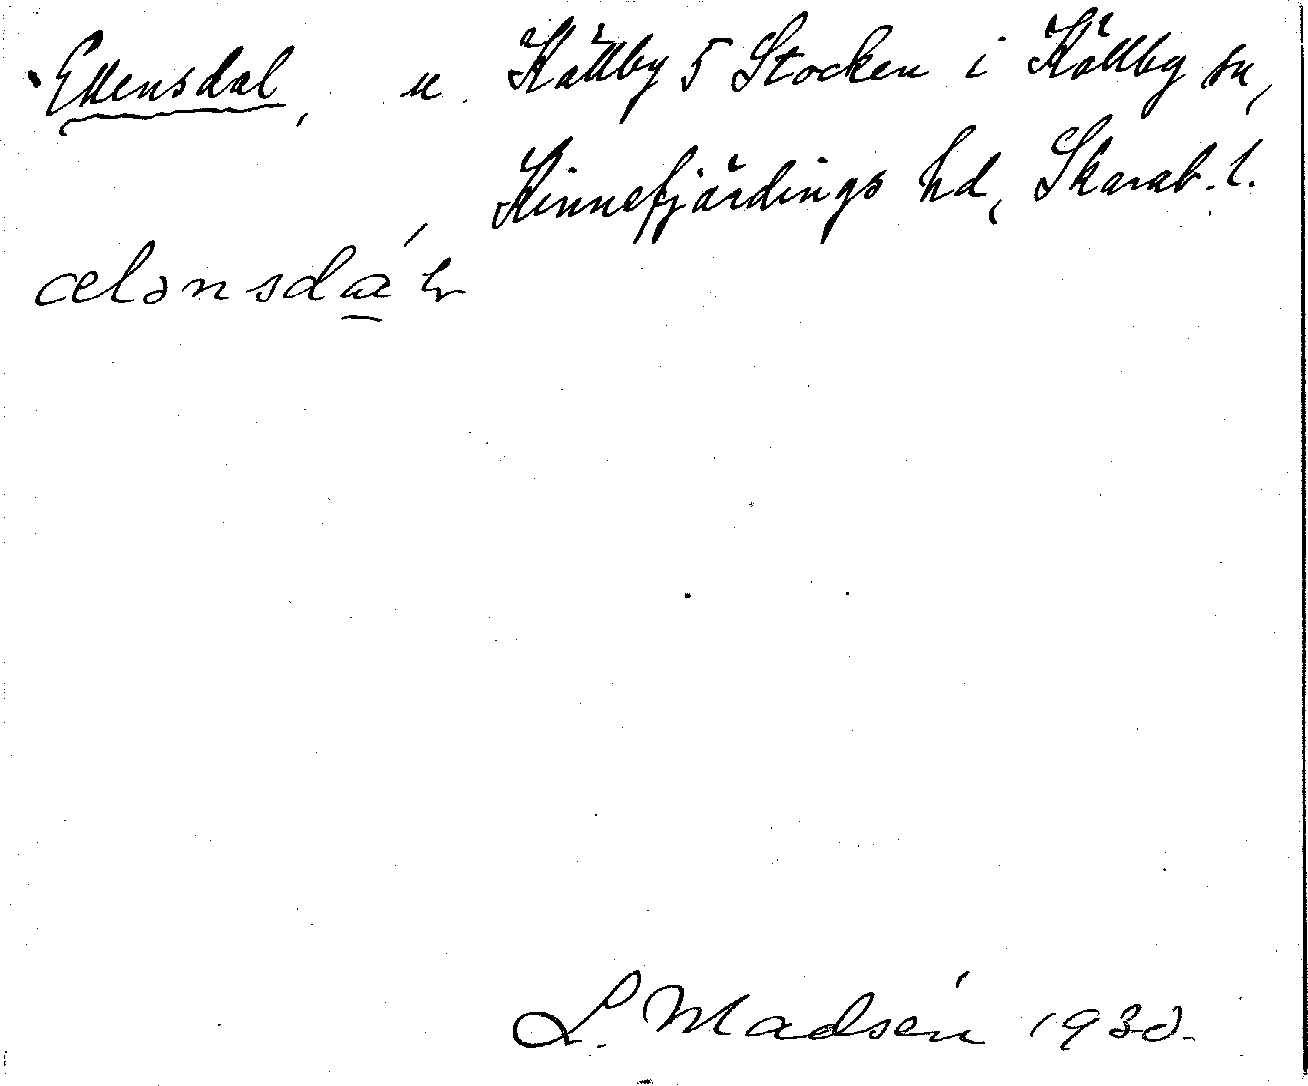 Ellensdal, u. Källby 5 Stocken i Källby sn,
Kinnefjärdings hd, Skarab. l.
ælənsdáɑ
L. Madsén 1930.